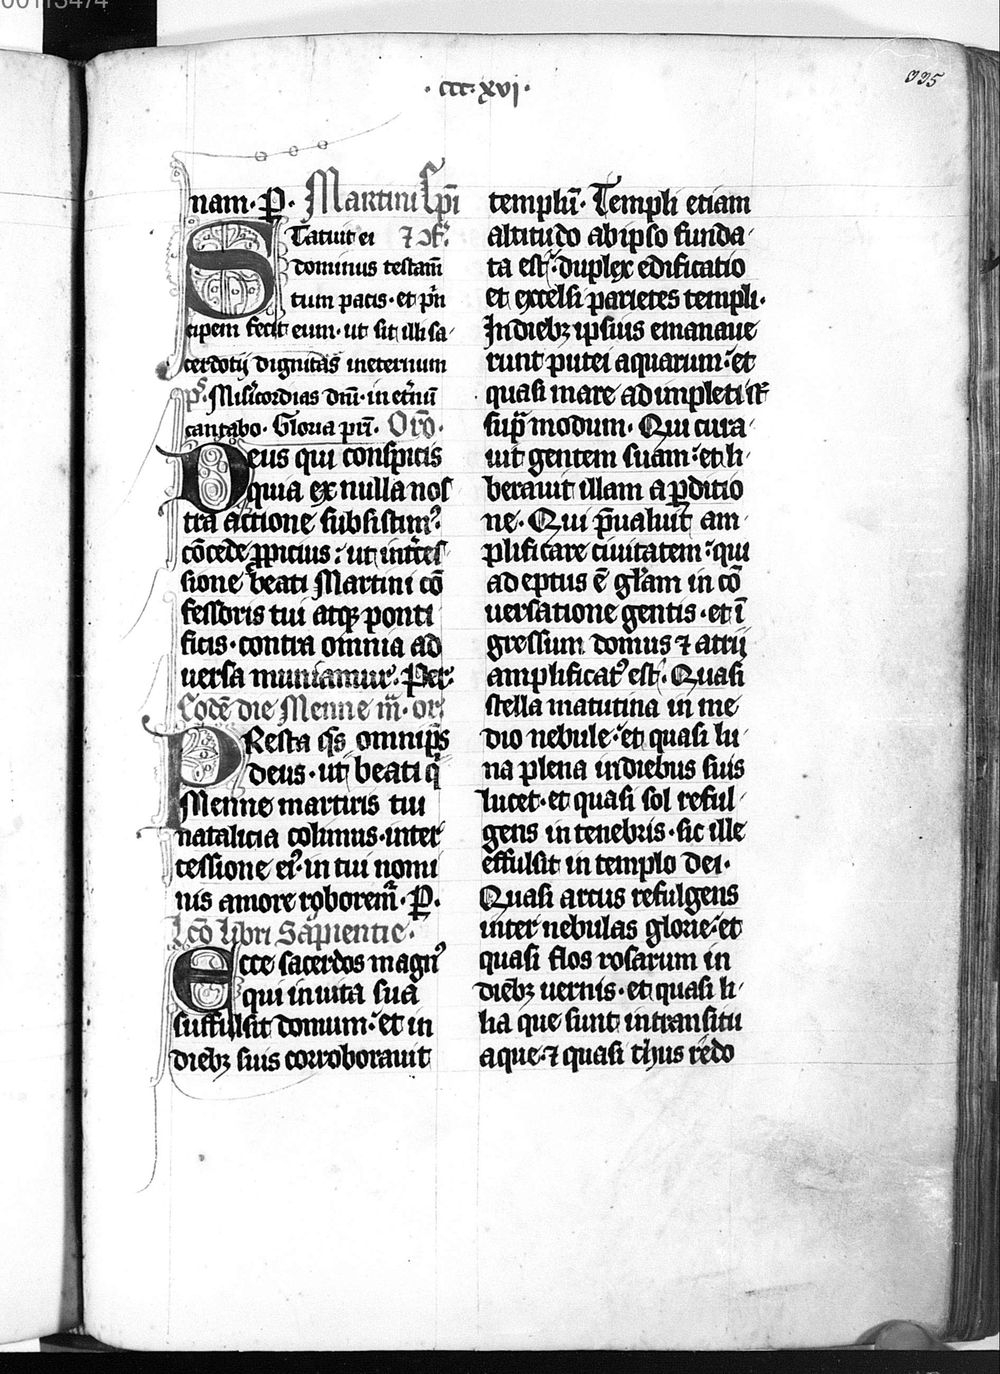 · ccc · xvi ·
335
nam · P̲ · Martini ep̄i
Statuit ei ⁊ ɔf̄.
dominus testam̄
tum pacis · et p̄n
cipem fecit eum · ut sit illi sa
cerdotij dignitas ineternum
p̄s. Mis̄icordias dn̄i · in et̄nū
cantabo · Gloria pr̄i · Or̄o ·
Deus qui conspicis
quia ex nulla nos
tra actione subsistim⁹ ·
cōcede ꝓpicius : ut int̄ces
sione beati Martini cō
fessoris tui atqꝫ ponti
ficis · contra omnia ad
uersa muniamur · Per ·
Eodē die Menne m̄r · or̄
PResta q̄s omnip̄s
deus · ut beati q̄
Menne martiris tui
natalicia colimus · inter
cessione ei⁹ · in tui nomi
nis amore roborem̄ · P̲ ·
Lc̄o libri Sapientie ·
Ecce sacerdos magn⁹
qui in uita sua
suffulsit domum · et in
diebꝫ suis corroborauit
templū · Templi etiam
altitudo ab ipso funda
ta est · duplex edificatio
et excelsi parietes templi ·
In diebꝫ ipsius emanaue
runt putei aquarum · et
quasi mare adimpleti st̄
sup̄ modum · Qui cura
uit gentem suam · et li
berauit illam a ꝑditio
ne · Qui p̄ualuit am
plificare ciuitatem · qui
adeptus ē gl̄am in cō
uersatione gentis · et ī
gressum domus ⁊ atrij
amplificat⁹ est · Quasi
stella matutina in me
dio nebule · et quasi lu
na plena in diebus suis
lucet · et quasi sol reful
gens in tenebris · sic ille
effulsit in templo dei ·
Quasi arcus refulgens
inter nebulas glorie · et
quasi flos rosarum in
diebꝫ uernis · et quasi li
lia que sunt in transitu
aque · ⁊ quasi thus redo